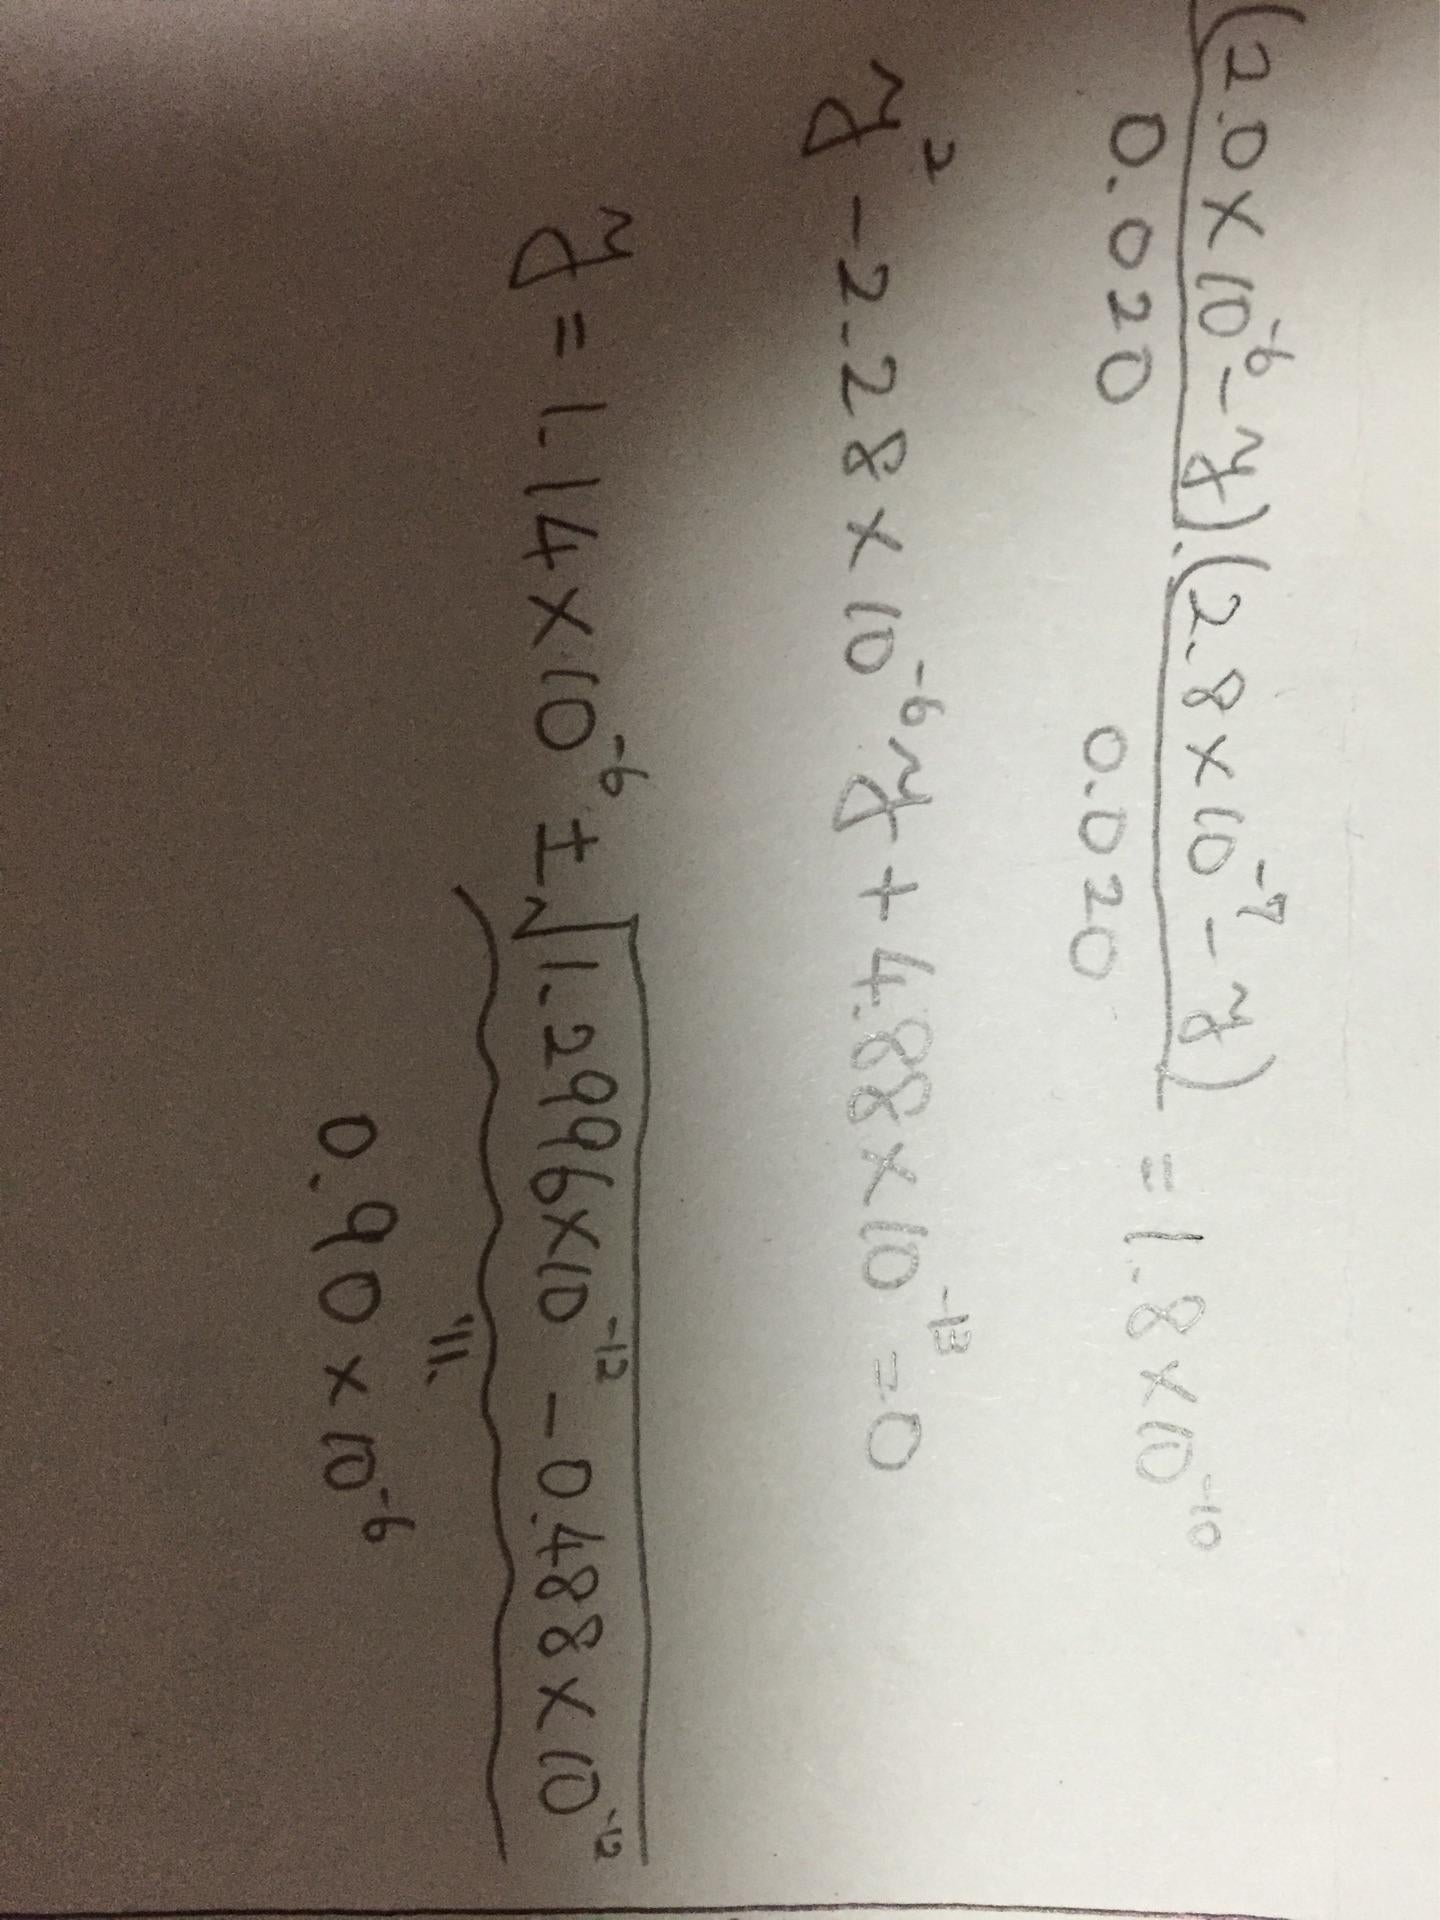 (2.0×10⁻⁶-y)/0.020 · (2.8×10⁻⁷-y)/0.020 = 1.8×10⁻¹⁰
y²-2.28×10⁻⁶y+4.88×10⁻¹³=0
y=1.14×10⁻⁶±√(1.2996×10⁻¹²-0.488×10⁻¹²)
0.90×10⁻⁶